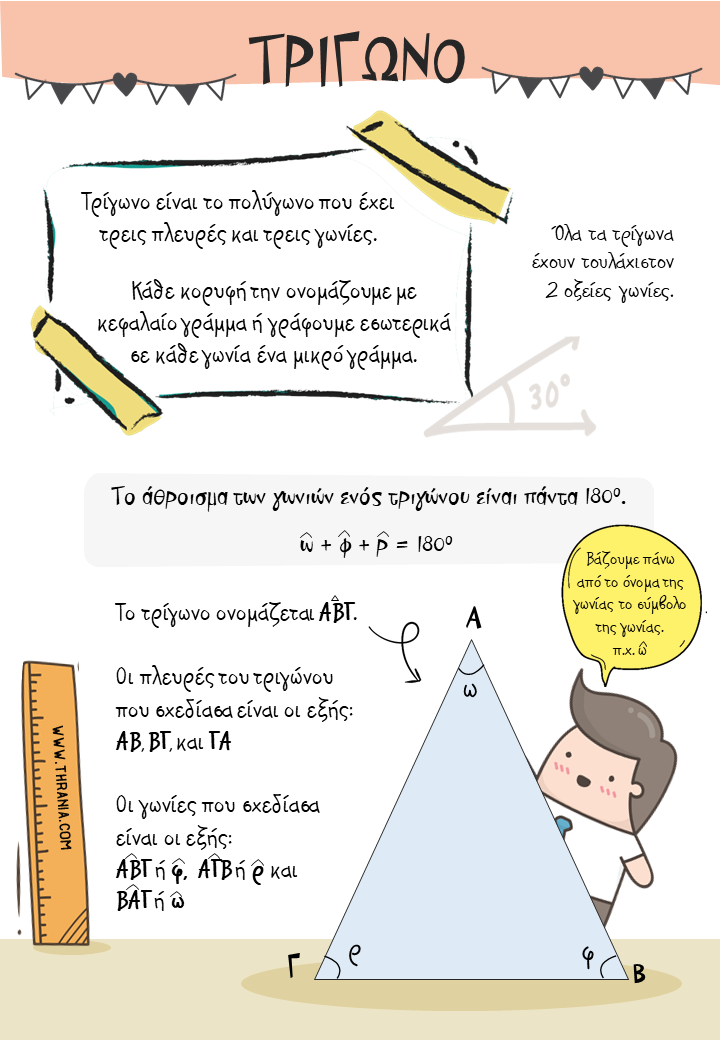 ΤΡΙΓΩΝΟ
Τρίγωνο είναι το πολύγωνο που έχει
τρεις πλευρές και τρεις γωνίες.
Κάθε κορυφή την ονομάζουμε με
κεφαλαίο γράμμα ή γράφουμε εσωτερικά
σε κάθε γωνία ένα μικρό γράμμα.
Όλα τα τρίγωνα
έχουν τουλάχιστον
2 οξείες γωνίες.
30°
Το άθροισμα των γωνιών ενός τριγώνου είναι πάντα 180°.
ω̂ + φ̂ + ρ̂ = 180°
Βάζουμε πάνω
από το όνομα της
γωνίας το σύμβολο
της γωνίας.
π.χ. ω̂
Το τρίγωνο ονομάζεται ΑΒ̂Γ.
Οι πλευρές του τριγώνου
που σχεδίασα είναι οι εξής:
ΑΒ, ΒΓ, και ΓΑ
Οι γωνίες που σχεδίασα
είναι οι εξής:
ΑΒ̂Γ ή φ̂, ΑΓ̂Β ή ρ̂ και
ΒΑ̂Γ ή ω̂
WWW.THRANIA.COM
Α
ω
Γ
ρ
φ
Β